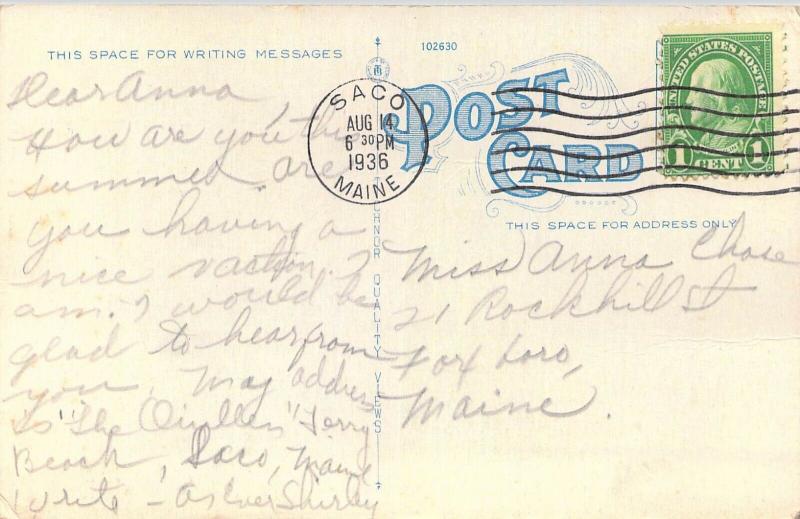 THIS SPACE FOR WRITING MESSAGES
102630
POST CARD
SACO
AUG 14
6 30 PM
1936
MAINE
UNITED STATES POSTAGE
1 CENT 1
THIS SPACE FOR ADDRESS ONLY
Dear Anna
How are you this
summer are
you having a
nice vaction. I
am. I would be
glad to hear from
you. May address
is "The Quillen" Ferry
Beach, Saco, Maine
Write - As Ever Shirley
TICHNOR QUALITY VIEWS
Miss Anna Chase
21 Rockhill St
Foxboro,
Maine.